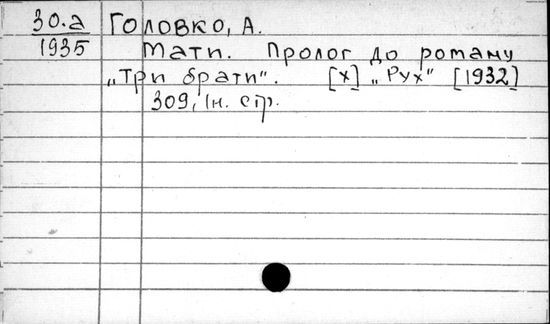 30.а
1935
Головко, А.
Мати. Пролог до роману
„Три брати“. [Х] „Рух“ [1932]
309, 1н. стр.